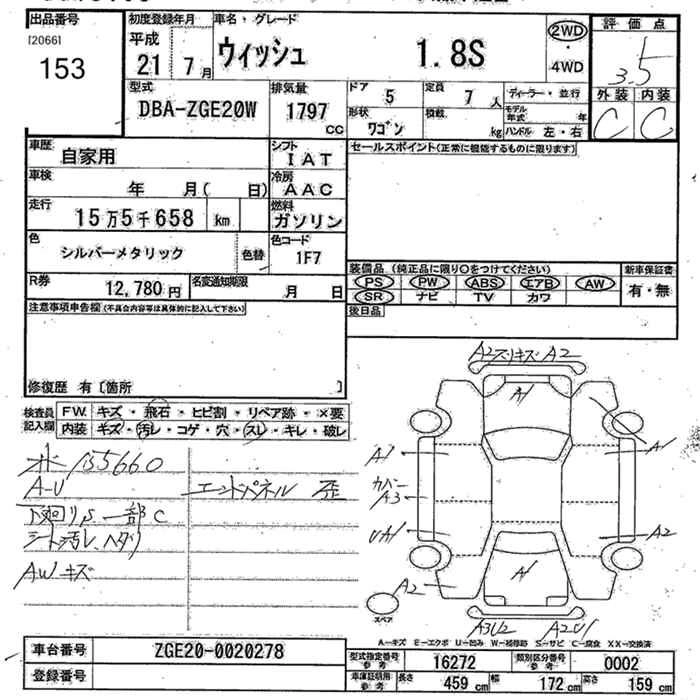 出品番号
[2066]
153
初度登録年月
平成
21年 7月
車名・グレード
ウィッシュ 1.8S
2WD
・
4WD
評価点
3.5
外装 内装
C C
型式
DBA-ZGE20W
排気量
1797 CC
ドア 5
定員 7人
形状 ワゴン
積載 kg
ディーラー・並行
モデル年式 年
ハンドル 左・右
車歴 自家用
シフト IAT
セールスポイント(正常に機能するものに限ります)
車検 年 月( 日)
冷房 AAC
走行 15万5千658 km
燃料 ガソリン
色 シルバーメタリック 色替
色コード 1F7
R券 12,780円
名変通知期限 月 日
装備品 (純正品に限り○をつけてください)
新車保証書
PS PW ABS エアB AW
有・無
SR ナビ TV カワ
後日品
注意事項申告欄(不具合内容等は具体的に記入して下さい)
修復歴 有〔箇所 〕
検査員記入欄
FW. キズ・飛石・ヒビ割・リペア跡・×要
内装 キズ・汚レ・コゲ・穴・スレ・キレ・破レ
155660
A-U
エンドパネル 歪
下廻りS 一部C
シート汚レ、ヘタリ
AWキズ
A2 スリキズ A2
A1
A1
A1
カバー
A3
UA1
A2
A1
A2
スペア
A3U2 A2U1
A-キズ E-エクボ U-凹み W-補修跡 S-サビ C-腐食 XX-交換済
車台番号 ZGE20-0020278
登録番号
型式指定番号参考 16272
類別区分番号参考 0002
車庫証明用参考 長さ 459 cm 幅 172 cm 高さ 159 cm